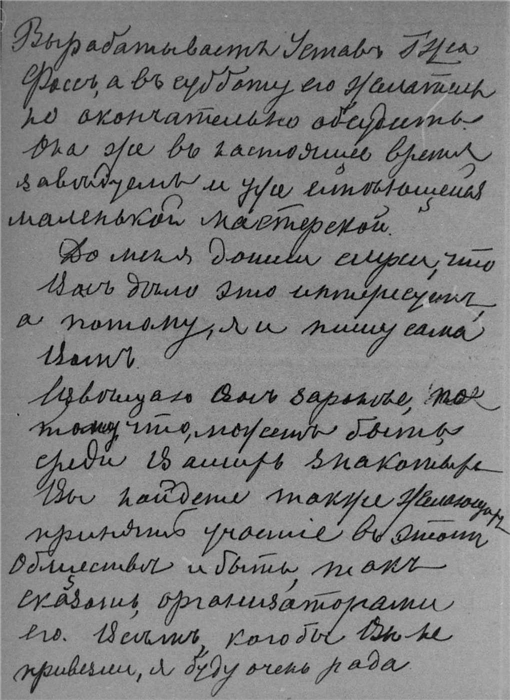 Вырабатываетъ Уставъ Гжа
Фоссъ, а въ субботу его желатель
но окончательно обсудить.
Она же въ настоящее время
завѣдуетъ и уже имѣющейся
маленькой мастерской.
До меня дошли слухи, что
Васъ дѣло это интересуетъ,
а потому, я и пишу сама
Вамъ.
Извѣщаю Васъ заранѣе,
потому, что, можетъ быть,
среди Вашихъ знакомыхъ
Вы найдете также желающихъ
принять участіе въ этомъ
Обществѣ и быть, такъ
сказать, организаторами
его. Всѣмъ, кого бы Вы не
привезли, я буду очень рада